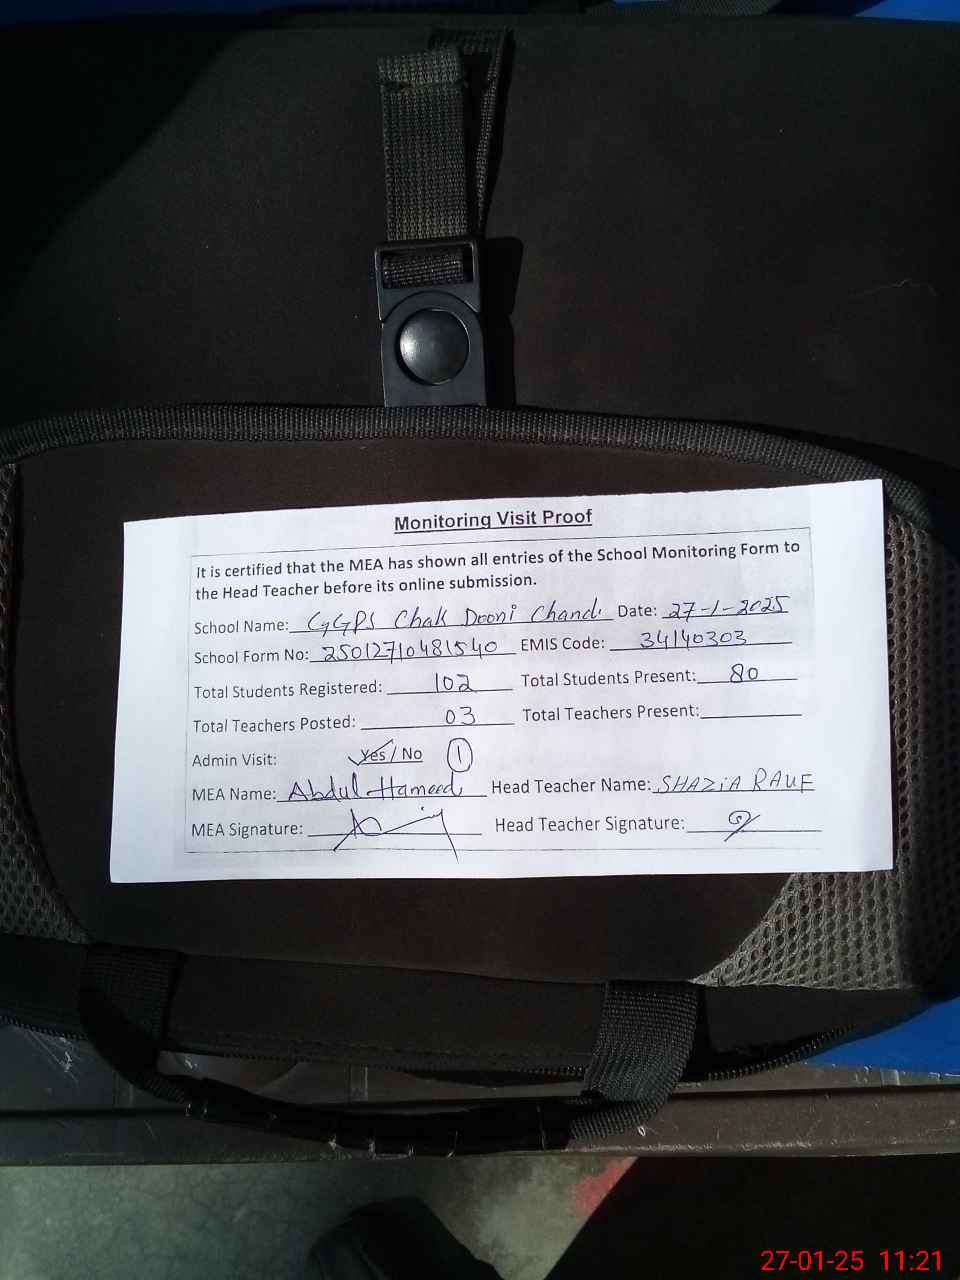 Monitoring Visit Proof
It is certified that the MEA has shown all entries of the School Monitoring Form to
the Head Teacher before its online submission.
School Name: GGPS Chak Dooni Chand Date: 27-1-2025
School Form No: 25012710481540 EMIS Code: 34140303
Total Students Registered: 102 Total Students Present: 80
Total Teachers Posted: 03 Total Teachers Present:
Admin Visit: Yes / No 1
MEA Name: Abdul Hameed Head Teacher Name: SHAZiA RAUF
MEA Signature: Head Teacher Signature:
27-01-25 11:21